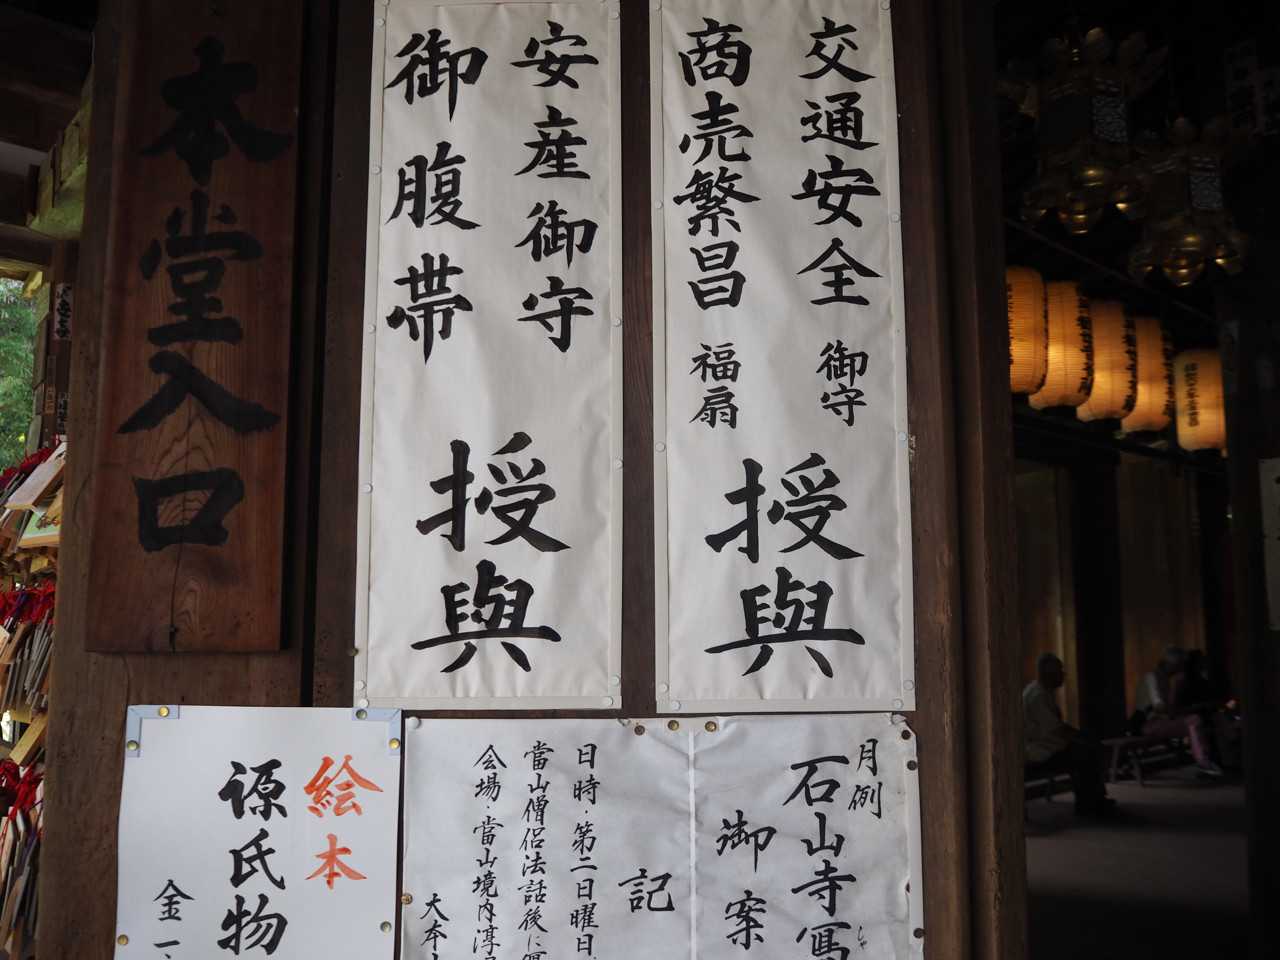 交通安全 御守
商売繁昌 福扇
授與
安産御守
御腹帯
授與
本堂入口
月例
石山寺寫
御案
記
日時・第二日曜日
當山僧侶法話後に
会場・當山境内
大本
絵本
源氏物
金一